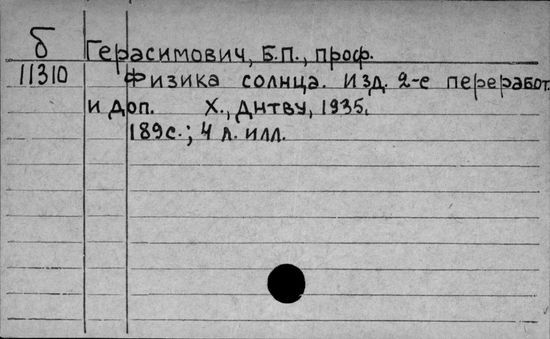 б
Герасимович, Б.П., проф.
11310
Физика солнца. Изд. 2-е переработ.
и доп. Х., ДНТВУ, 1935.
189с.; 4 л. илл.